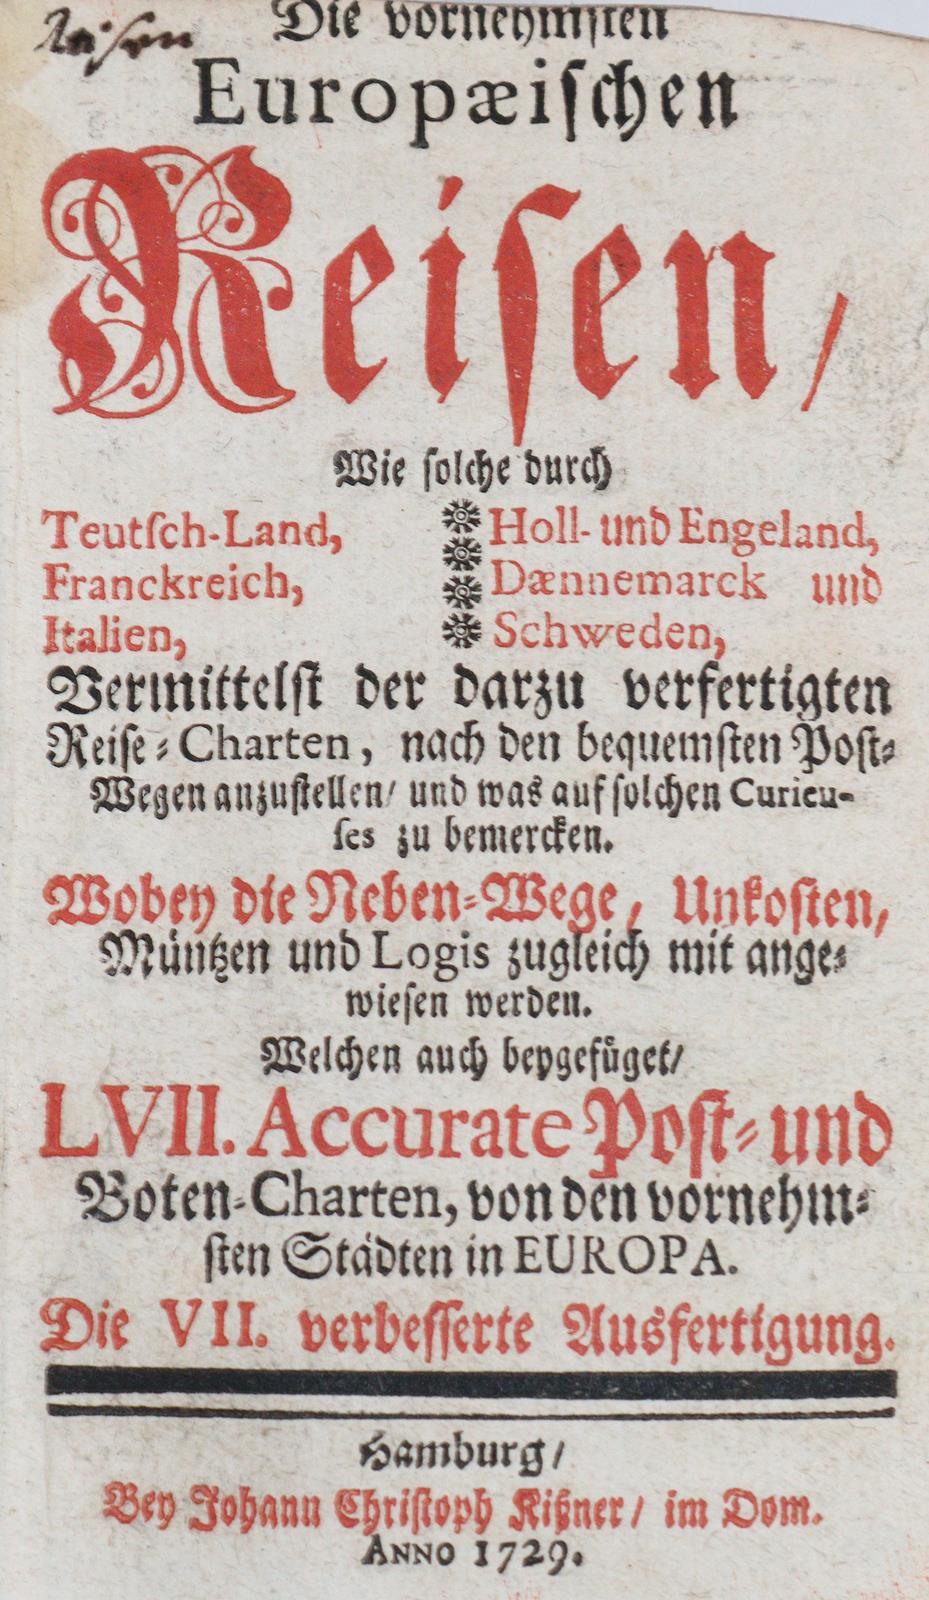 Reisen
Die vornehmsten
Europæischen
Reisen/
Wie solche durch
Teutsch-Land,
Franckreich,
Italien,
Holl- und Engeland,
Dænnemarck und
Schweden,
Vermittelst der darzu verfertigten
Reise-Charten, nach den bequemsten Post-
Wegen anzustellen/ und was auf solchen Curieu-
ses zu bemercken.
Wobey die Neben-Wege, Unkosten,
Müntzen und Logis zugleich mit ange-
wiesen werden.
Welchen auch beygefüget/
LVII. Accurate Post- und
Boten-Charten, von den vornehm-
sten Städten in EUROPA.
Die VII. verbesserte Ausfertigung.
Hamburg/
Bey Johann Christoph Kißner/ im Dom.
ANNO 1729.